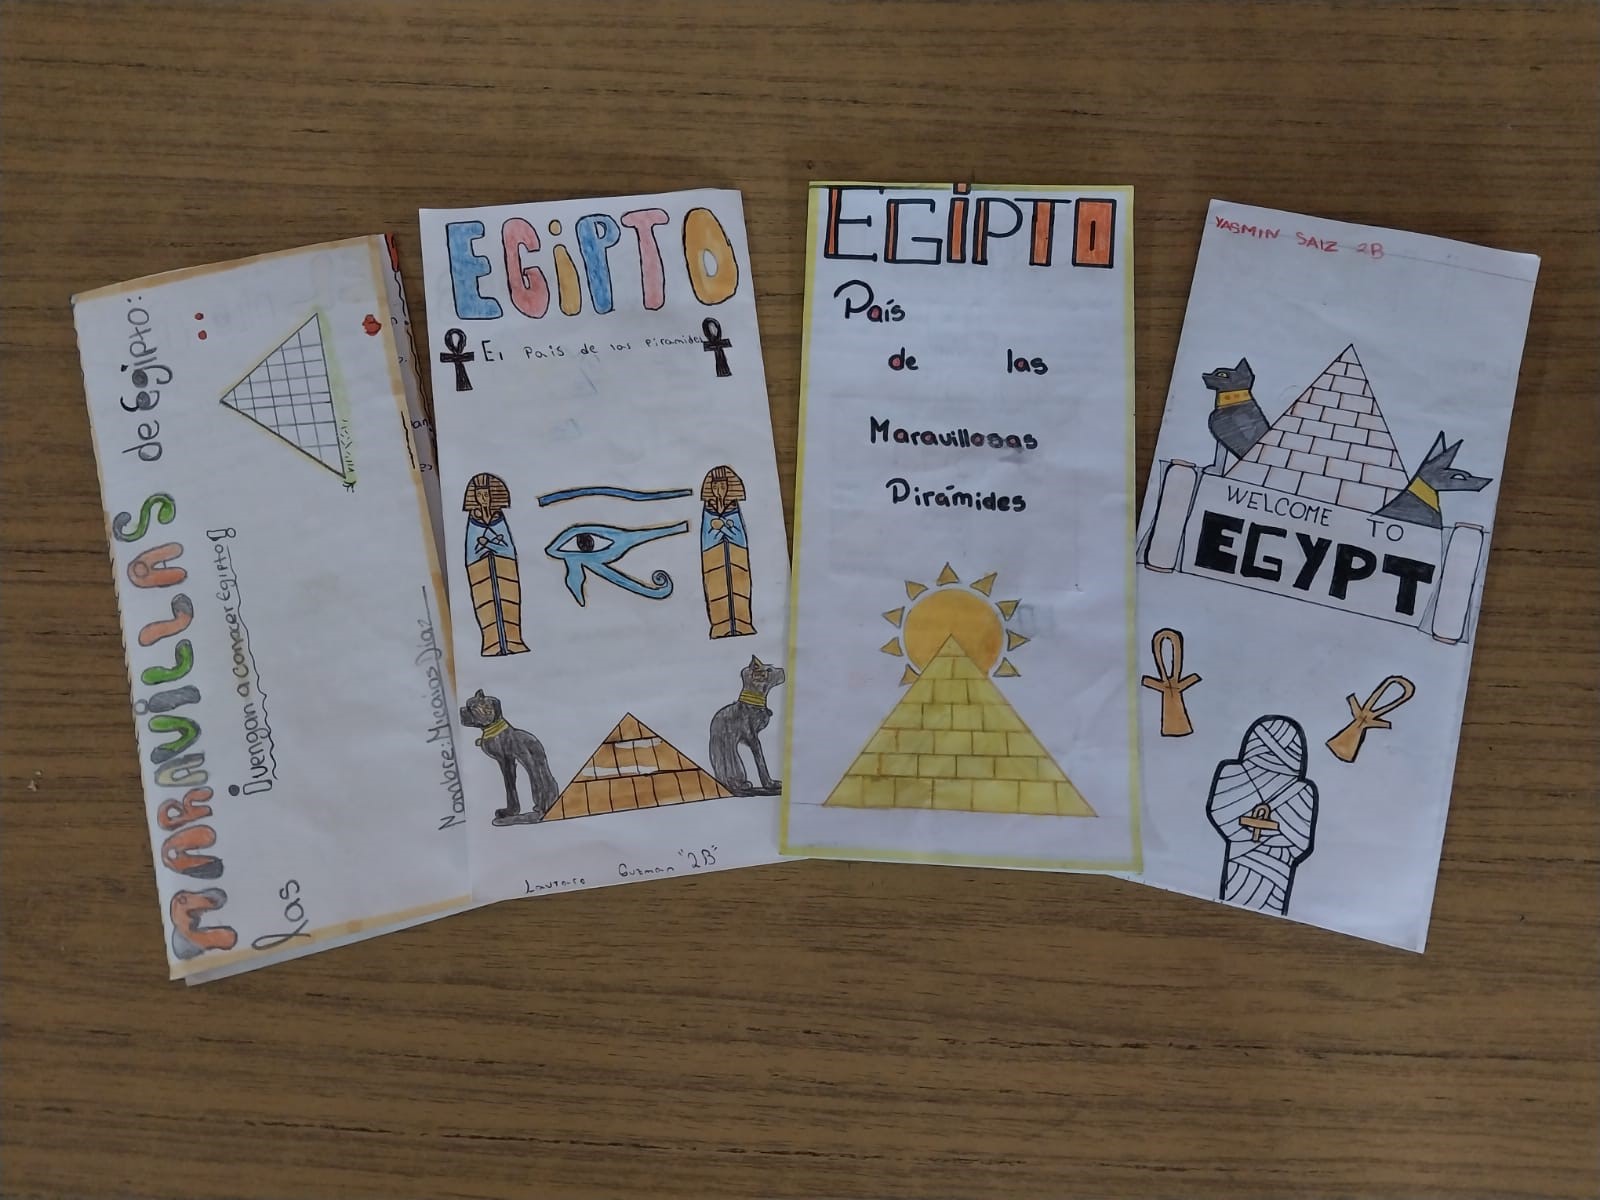 las MARAVILLAS de Egipto:
¡vengan a conocer Egipto!
Nombre: Micaias Diaz
EGIPTO
El Pais de las Piramides
Lautaro Guzman "2B"
EGIPTO
País
de las
Maravillosas
Pirámides
YASMIN SAIZ 2B
WELCOME TO
EGYPT